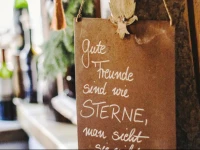 Gute
Freunde
sind wie
STERNE,
man sieht
sie nicht